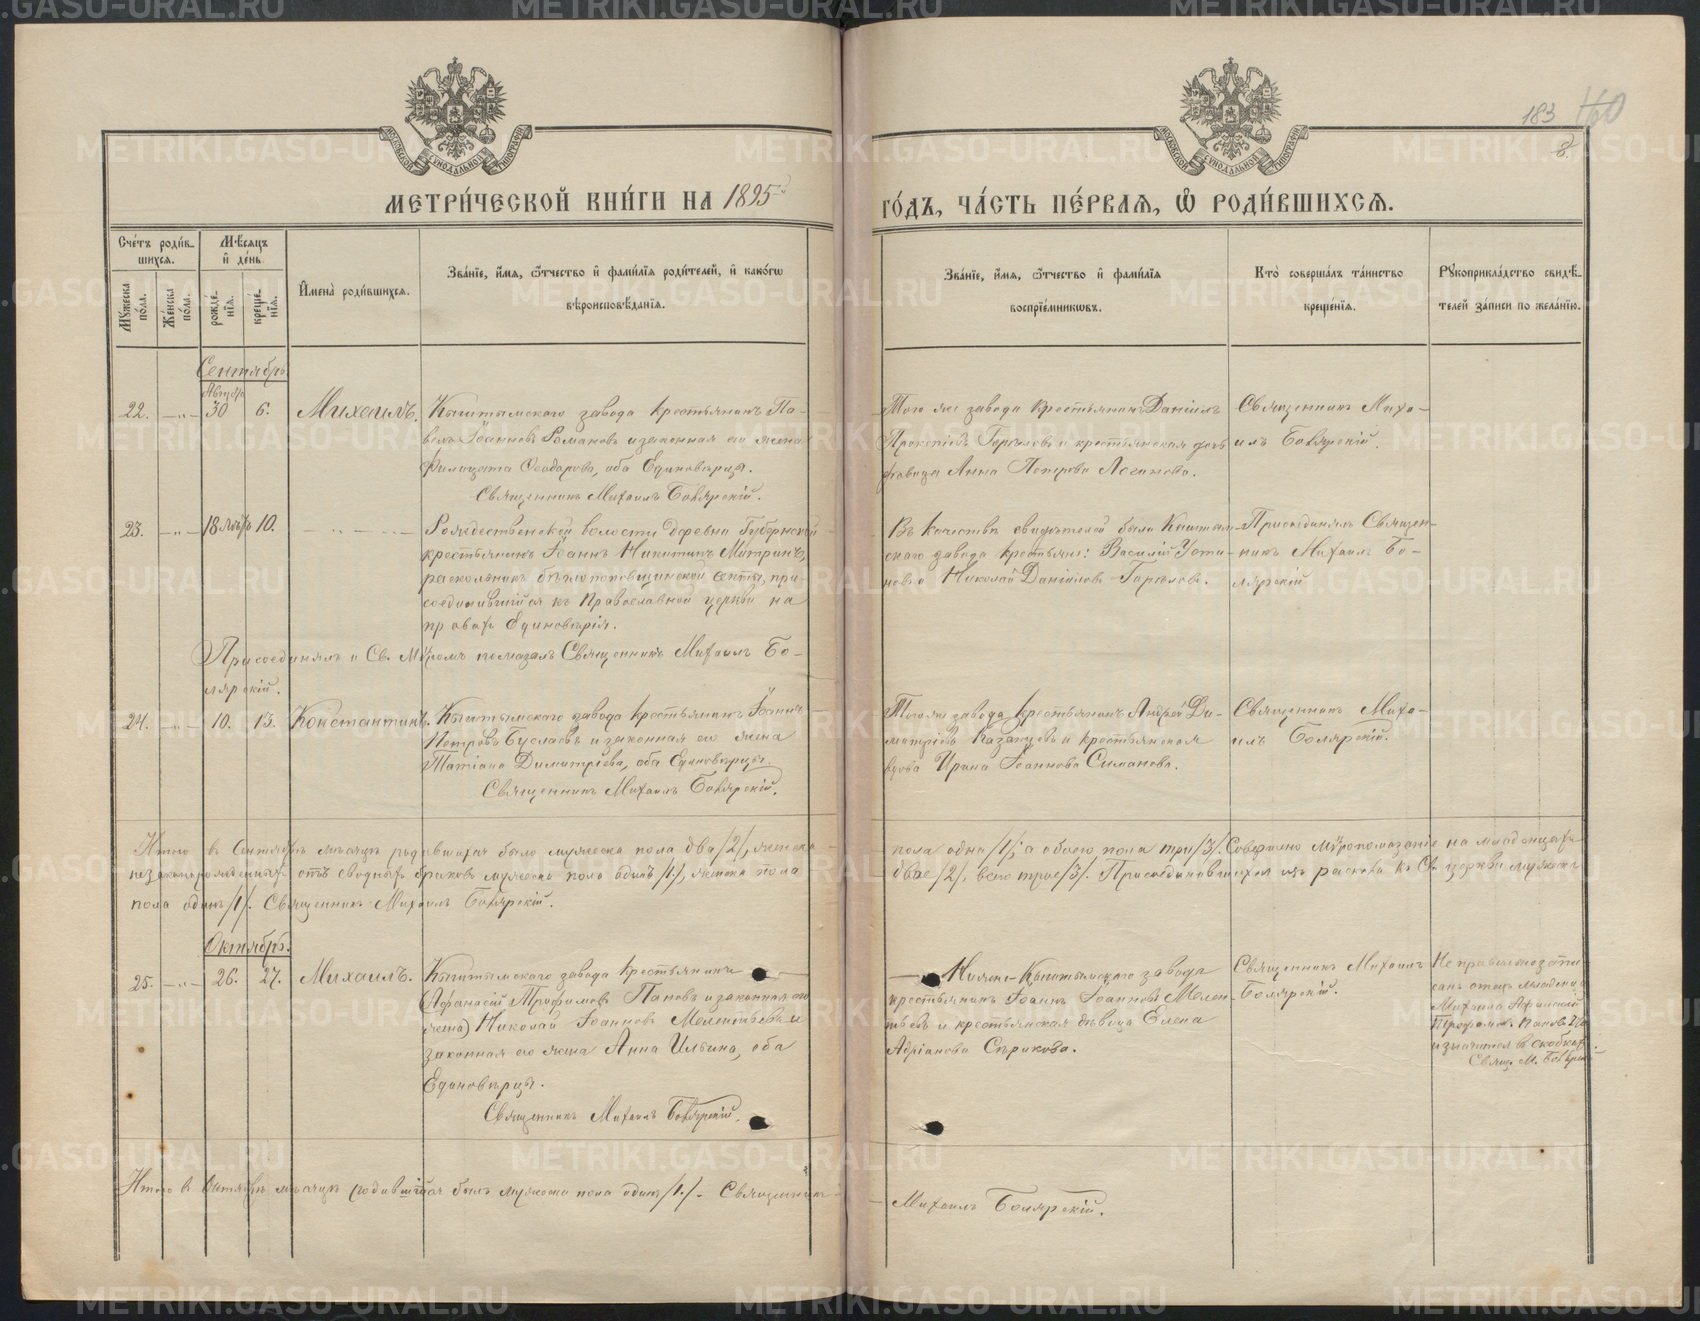 183 160
8.
МЕТРИ́ЧЕСКОЙ КНИ́ГИ НА 1895 ГО́ДЪ, ЧА́СТЬ ПЕ́РВАЯ, Ѡ РОДИ́ВШИХСЯ.
Сче́тъ роди́в-
шихся.
Му́жеска по́ла.
Же́нска по́ла.
Мѣ́сяцъ
и҆ де́нь.
рожде́-
нїя.
креще́-
нїя.
И҆мена̀ роди́вшихся.
Зва́нїе, и҆́мя, ѻ҆́тчество и҆ фами́лїя роди́телей, и҆ како́гѡ
вѣроисповѣ́данїя.
Зва́нїе, и҆́мя, ѻ҆́тчество и҆ фами́лїя
воспрїе́мникѡвъ.
Кто̀ соверша́лъ та́инство
креще́нїя.
Рꙋкоприкла́дство свидѣ́-
телей за́писи по жела́нїю.
Сентябрь
22. — „ — Августъ 30 6. Михаилъ.
Кыштымскаго завода крестьянинъ Па-
велъ Іоанновъ Романовъ и законная его жена
Филицата Ѳеодорова, оба Единовѣрцы.
Священникъ Михаилъ Боярскій.
Того же завода крестьянинъ Даніилъ
Прокопіевъ Горѣловъ и крестьянская дочь
дѣвица Анна Петрова
Священникъ Миха-
илъ Боярскій.
23. — „ — 18 10. — „ —
Рождественской волости деревни Губернской
крестьянинъ Іоаннъ Никитинъ Митринъ,
раскольникъ бѣглопоповщинской секты, при-
соединившійся къ Православной церкви на
правахъ Единовѣрія.
Присоединялъ и Св. Мѵромъ помазалъ Священникъ Михаилъ Бо-
лярскій.
Въ качествѣ свидѣтелей были Кыштым-
скаго завода крестьяне: Василій Усти-
новъ и Николай Даніиловъ Горѣловъ.
Присоединялъ Священ-
никъ Михаилъ Бо-
лярскій
24. — „ — 10. 13. Константинъ.
Кыштымскаго завода крестьянинъ Іоаннъ
Петровъ Буслаевъ и законная его жена
Татіана Димитріева, оба Единовѣрцы.
Священникъ Михаилъ Боярскій.
Того же завода крестьянинъ Андрей Ди-
митріевъ Казанцевъ и крестьянская
вдова Ирина Іоаннова Симанова.
Священникъ Миха-
илъ Болярскій.
Итого въ Сентябрѣ мѣсяцѣ родившихся было мужеска пола два /2/, женска
пола одна /1/; а обоего пола три /3/. Совершено мѵропомазаніе на младенцахъ
незаконнорожденныхъ отъ сводныхъ браковъ мужеска пола одинъ /1/, женска пола
двое /2/, всего трое /3/. Присоединившихся изъ раскола къ Св. церкви мужеска
пола одинъ /1/. Священникъ Михаилъ Боярскій.
Октябрь.
25. — „ — 26. 27. Михаилъ.
Кыштымскаго завода крестьянинъ
(Афанасій Трофимовъ Пановъ и законная его
жена) Николай Іоанновъ Мелентьевъ и
законная его жена Анна Ильина, оба
Единовѣрцы.
Священникъ Михаилъ Боярскій.
Нижне-Кыштымскаго завода
крестьянинъ Іоаннъ Іоанновъ Мелен-
тьевъ и крестьянская дѣвица Елена
Адріанова Сѣрикова.
Священникъ Михаилъ
Болярскій.
Неправильно запи-
санъ отецъ младенца
Михаила Афанасій
Трофимовъ Пановъ
и значится въ скобкахъ.
Свящ. М. Боярскій
Итого въ Октябрѣ мѣсяцѣ родившійся былъ мужеска пола одинъ /1/. Священникъ
Михаилъ Болярскій.
METRIKI.GASO-URAL.RU